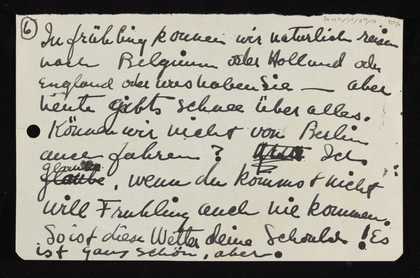 6
In frühling konnen wir naturlich reisen
nach Belgium oder Holland oder
England oder was haben Sie — aber
heute gibts schnee über alles.
Können wir nicht von Berlin
aus fahren? Ich
glaube, wenn du kommst nicht
will Fruhling auch nie kommen.
So ist diese Wetter deine Schould! Es
ist ganz schön, aber.